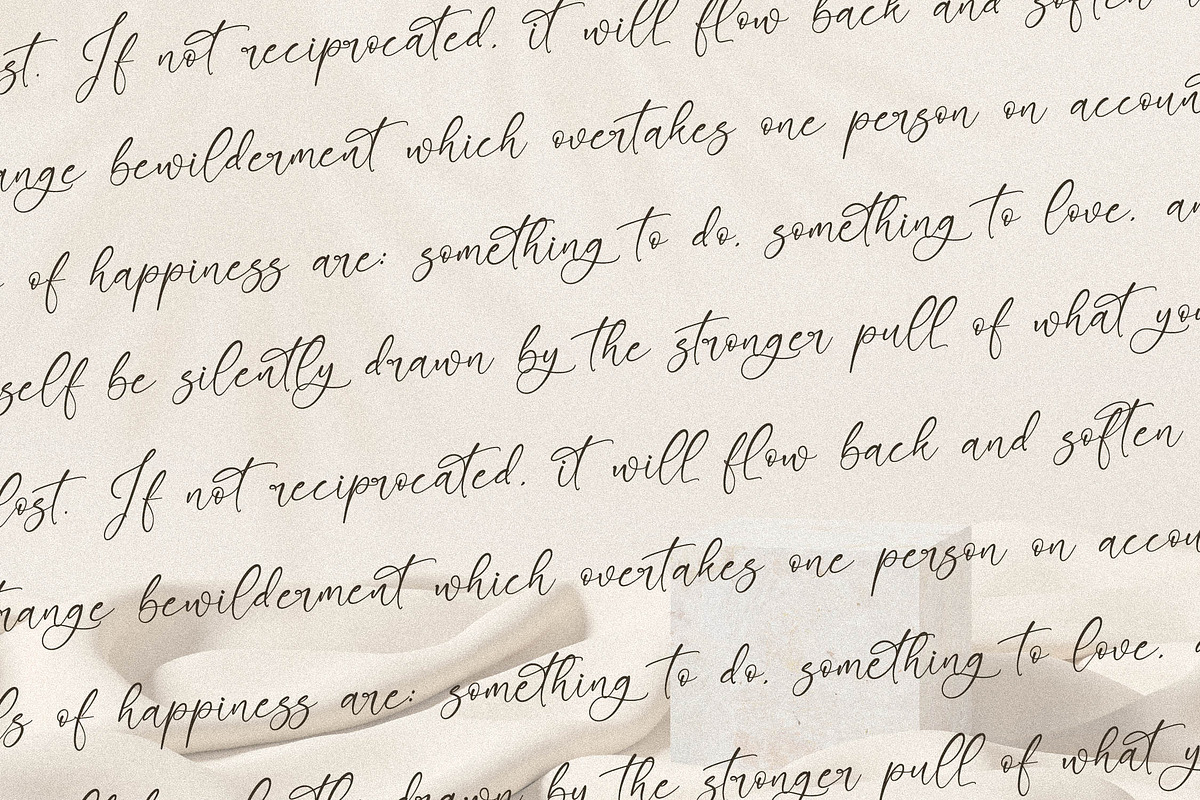 st. If not reciprocated, it will flow back and soften
ange bewilderment which overtakes one person on accoun
of happiness are: something to do, something to love, an
self be silently drawn by the stronger pull of what you
lost. If not reciprocated, it will flow back and soften
range bewilderment which overtakes one person on accou
ls of happiness are: something to do, something to love, a
drawn by the stronger pull of what y